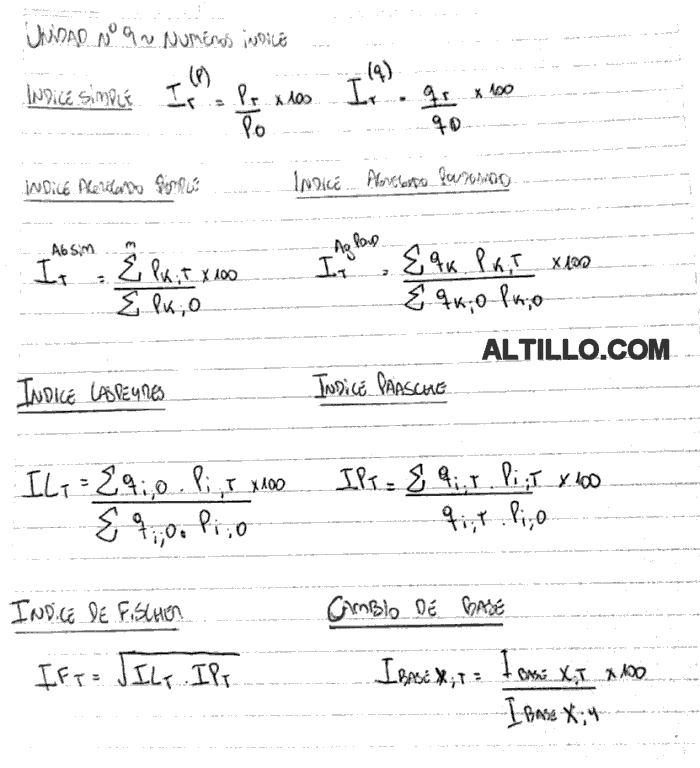 UNIDAD Nº 9 ~ NUMEROS INDICE
INDICE SIMPLE I_T^(P) = P_T / P_0 × 100 I_T^(q) = q_T / q_0 × 100
INDICE AGREGADO SIMPLE INDICE AGREGADO PONDERADO
I_T^AGSIM = Σ^m P_K,T / Σ P_K,0 × 100 I_T^AgPOND = Σ q_K P_K,T / Σ q_K,0 P_K,0 × 100
ALTILLO.COM
INDICE LASPEYRES INDICE PAASCHE
IL_T = Σ q_i,0 . P_i,T / Σ q_i,0 . P_i,0 × 100 IP_T = Σ q_i,T . P_i,T / q_i,T . P_i,0 × 100
INDICE DE FISCHER CAMBIO DE BASE
IF_T = √(IL_T . IP_T) I_BASE X,T = I_BASE X,T / I_BASE X,y × 100